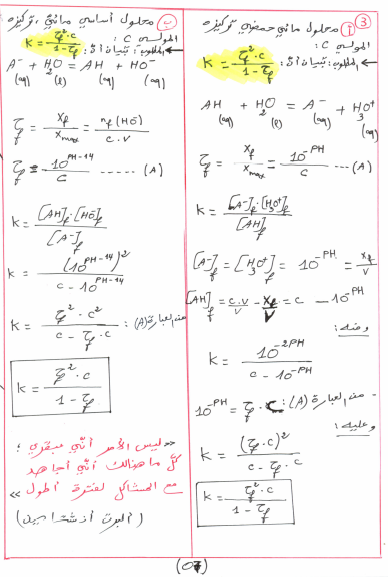 ③
أ) محلول مائي حمضي تركيزه
المولي C :
← المطلوب: تبيان أنّ: K = τf²·c / 1-τf
AH + H2O = A- + H3O+
(aq) (l) (aq) (aq)
τf = xf / xmax = 10^-PH / c ---- (A)
K = [A-]f·[H3O+]f / [AH]f
[A-]f = [H3O+]f = 10^-PH = xf / V
[AH]f = c.v / V - xf / V = c - 10^-PH
ومنه :
K = 10^-2PH / c - 10^-PH
- من العبارة (A): 10^-PH = τf · c
وعليه :
K = (τf·c)² / c - τf·c
K = τf²·c / 1-τf
ب) محلول أساسي مائي، تركيزه
المولي C :
← المطلوب: تبيان أنّ: K = τf²·c / 1-τf
A- + H2O = AH + HO-
(aq) (l) (aq) (aq)
τf = xf / xmax = nf(HO-) / c.v
τf = 10^PH-14 / c ---- (A)
K = [AH]f·[HO-]f / [A-]f
K = (10^PH-14)² / c - 10^PH-14
من العبارة (A): K = τf²·c² / c - τf·c
K = τf²·c / 1-τf
«ليس الأمر أنّي عبقري ؛
كلّ ما هنالك أنّي أجاهد
مع المشاكل لفترة أطول»
(ألبرت أنشتاين)
(07)